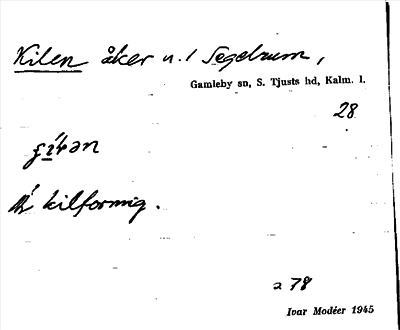 Kilen åker n. 1 Segelrum,
Gamleby sn, S. Tjusts hd, Kalm. l.
28
kilformig.
a 78
Ivar Modéer 1945